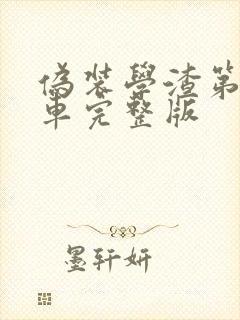 偽裝學渣第
車完整版
墨軒妍